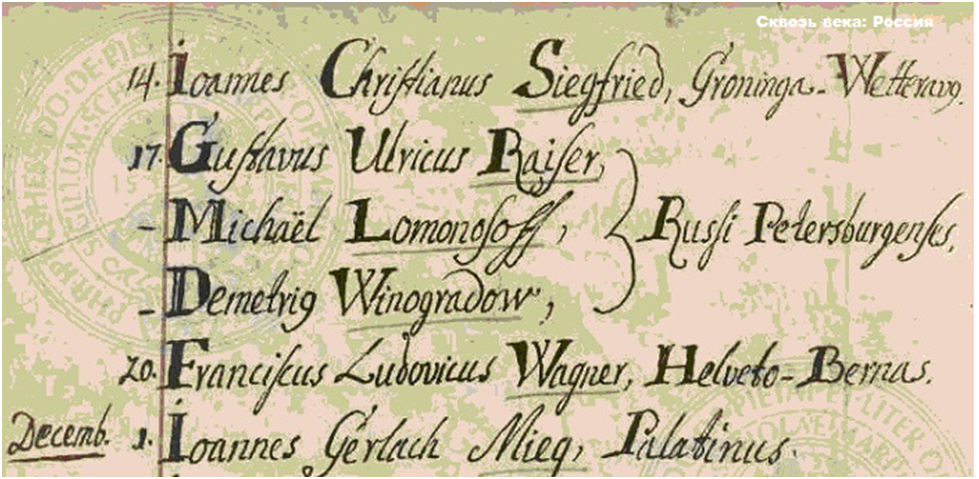 Сквозь века: Россия
14. Ioannes Christianus Siegfried, Groninga-Wetteravg.
17. Gustavus Ulricus Raiser,
- Michaël Lomonosoff, Russi Petersburgenses.
- Demetrig Winogradow,
20. Franciscus Ludovicus Wagner, Helveto-Bernas.
Decemb. 1. Ioannes Gerlach Mieg, Palatinus.